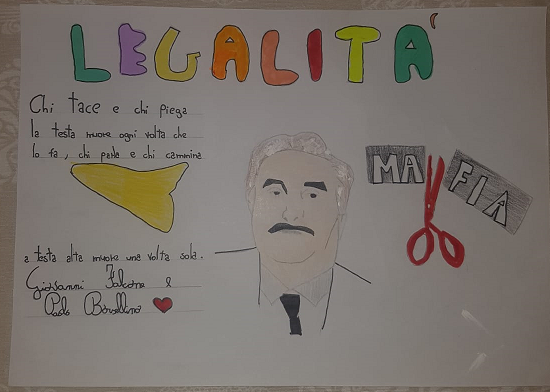 LEGALITA'
Chi tace e chi piega
la testa muore ogni volta che
lo fa, chi parla e chi cammina
a testa alta muore una volta sola.
Giovanni Falcone e
Paolo Borsellino
MA
FIA